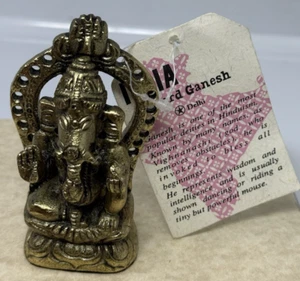 IA
rd Ganesh
Delhi
Ganesh is one of the most
popular deities of Hinduism,
known by many names.
Vighnaharta: god who
removes obstacles in all
beginnings
He represents wisdom and
intelligence and is usually
shown dancing or riding a
tiny but powerful mouse.